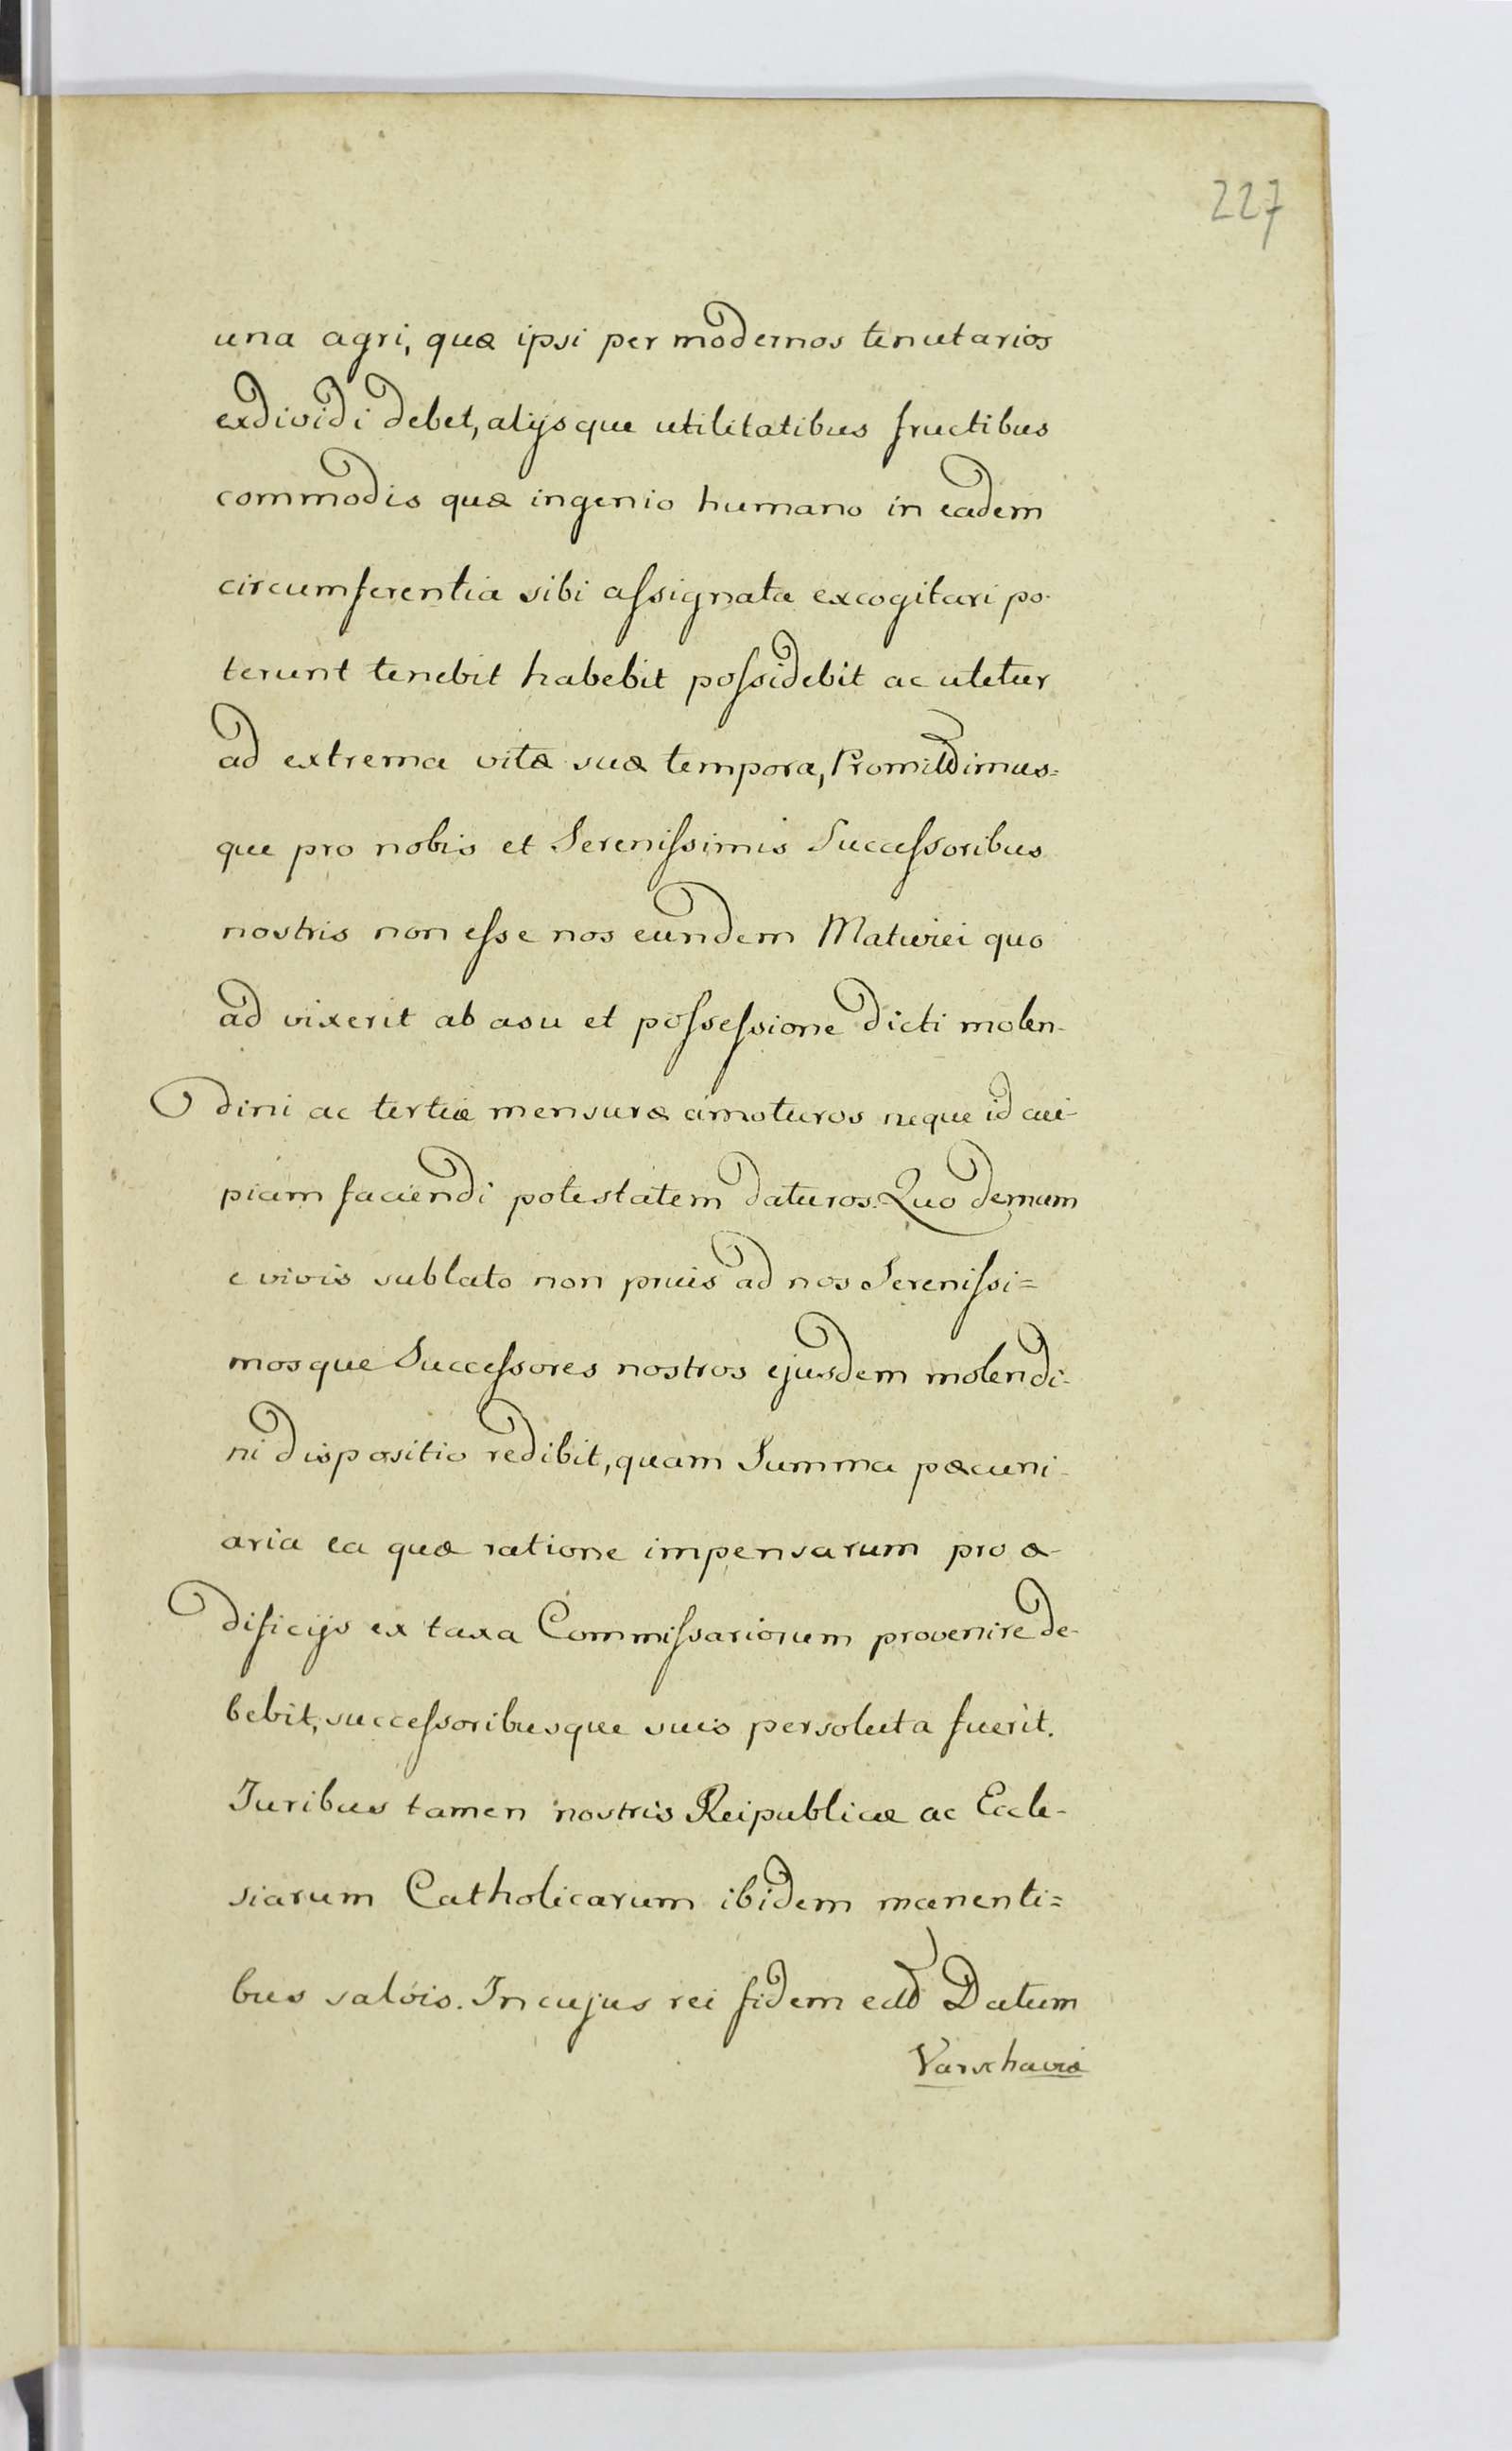 227
una agri, quæ ipsi per modernos tenutarios
exdividi debet, alijsque utilitatibus fructibus
commodis quæ ingenio humano in eadem
circumferentia sibi assignata excogitari po-
terunt tenebit habebit possidebit ac utetur
ad extrema vitæ suæ tempora, Promittimus=
que pro nobis et Serenissimis Successoribus
nostris non esse nos eundem quo
ad vixerit ab usu et possessione dicti molen-
dini ac tertiæ mensuræ amoturos neque id cui-
piam faciendi potestatem daturos. Quo demum
e vivis sublato non prius ad nos Serenissi=
mosque Successores nostros ejusdem molendi-
ni dispositio redibit, quam Summa pæcuni-
aria ea quæ ratione impensarum pro æ-
dificijs ex taxa Commissariorum provenire de-
bebit, successoribusque suis persoluta fuerit.
Juribus tamen nostris Reipublicæ ac Eccle-
siarum Catholicarum ibidem manenti=
bus salvis. In cujus rei fidem Datum
Varschaviæ